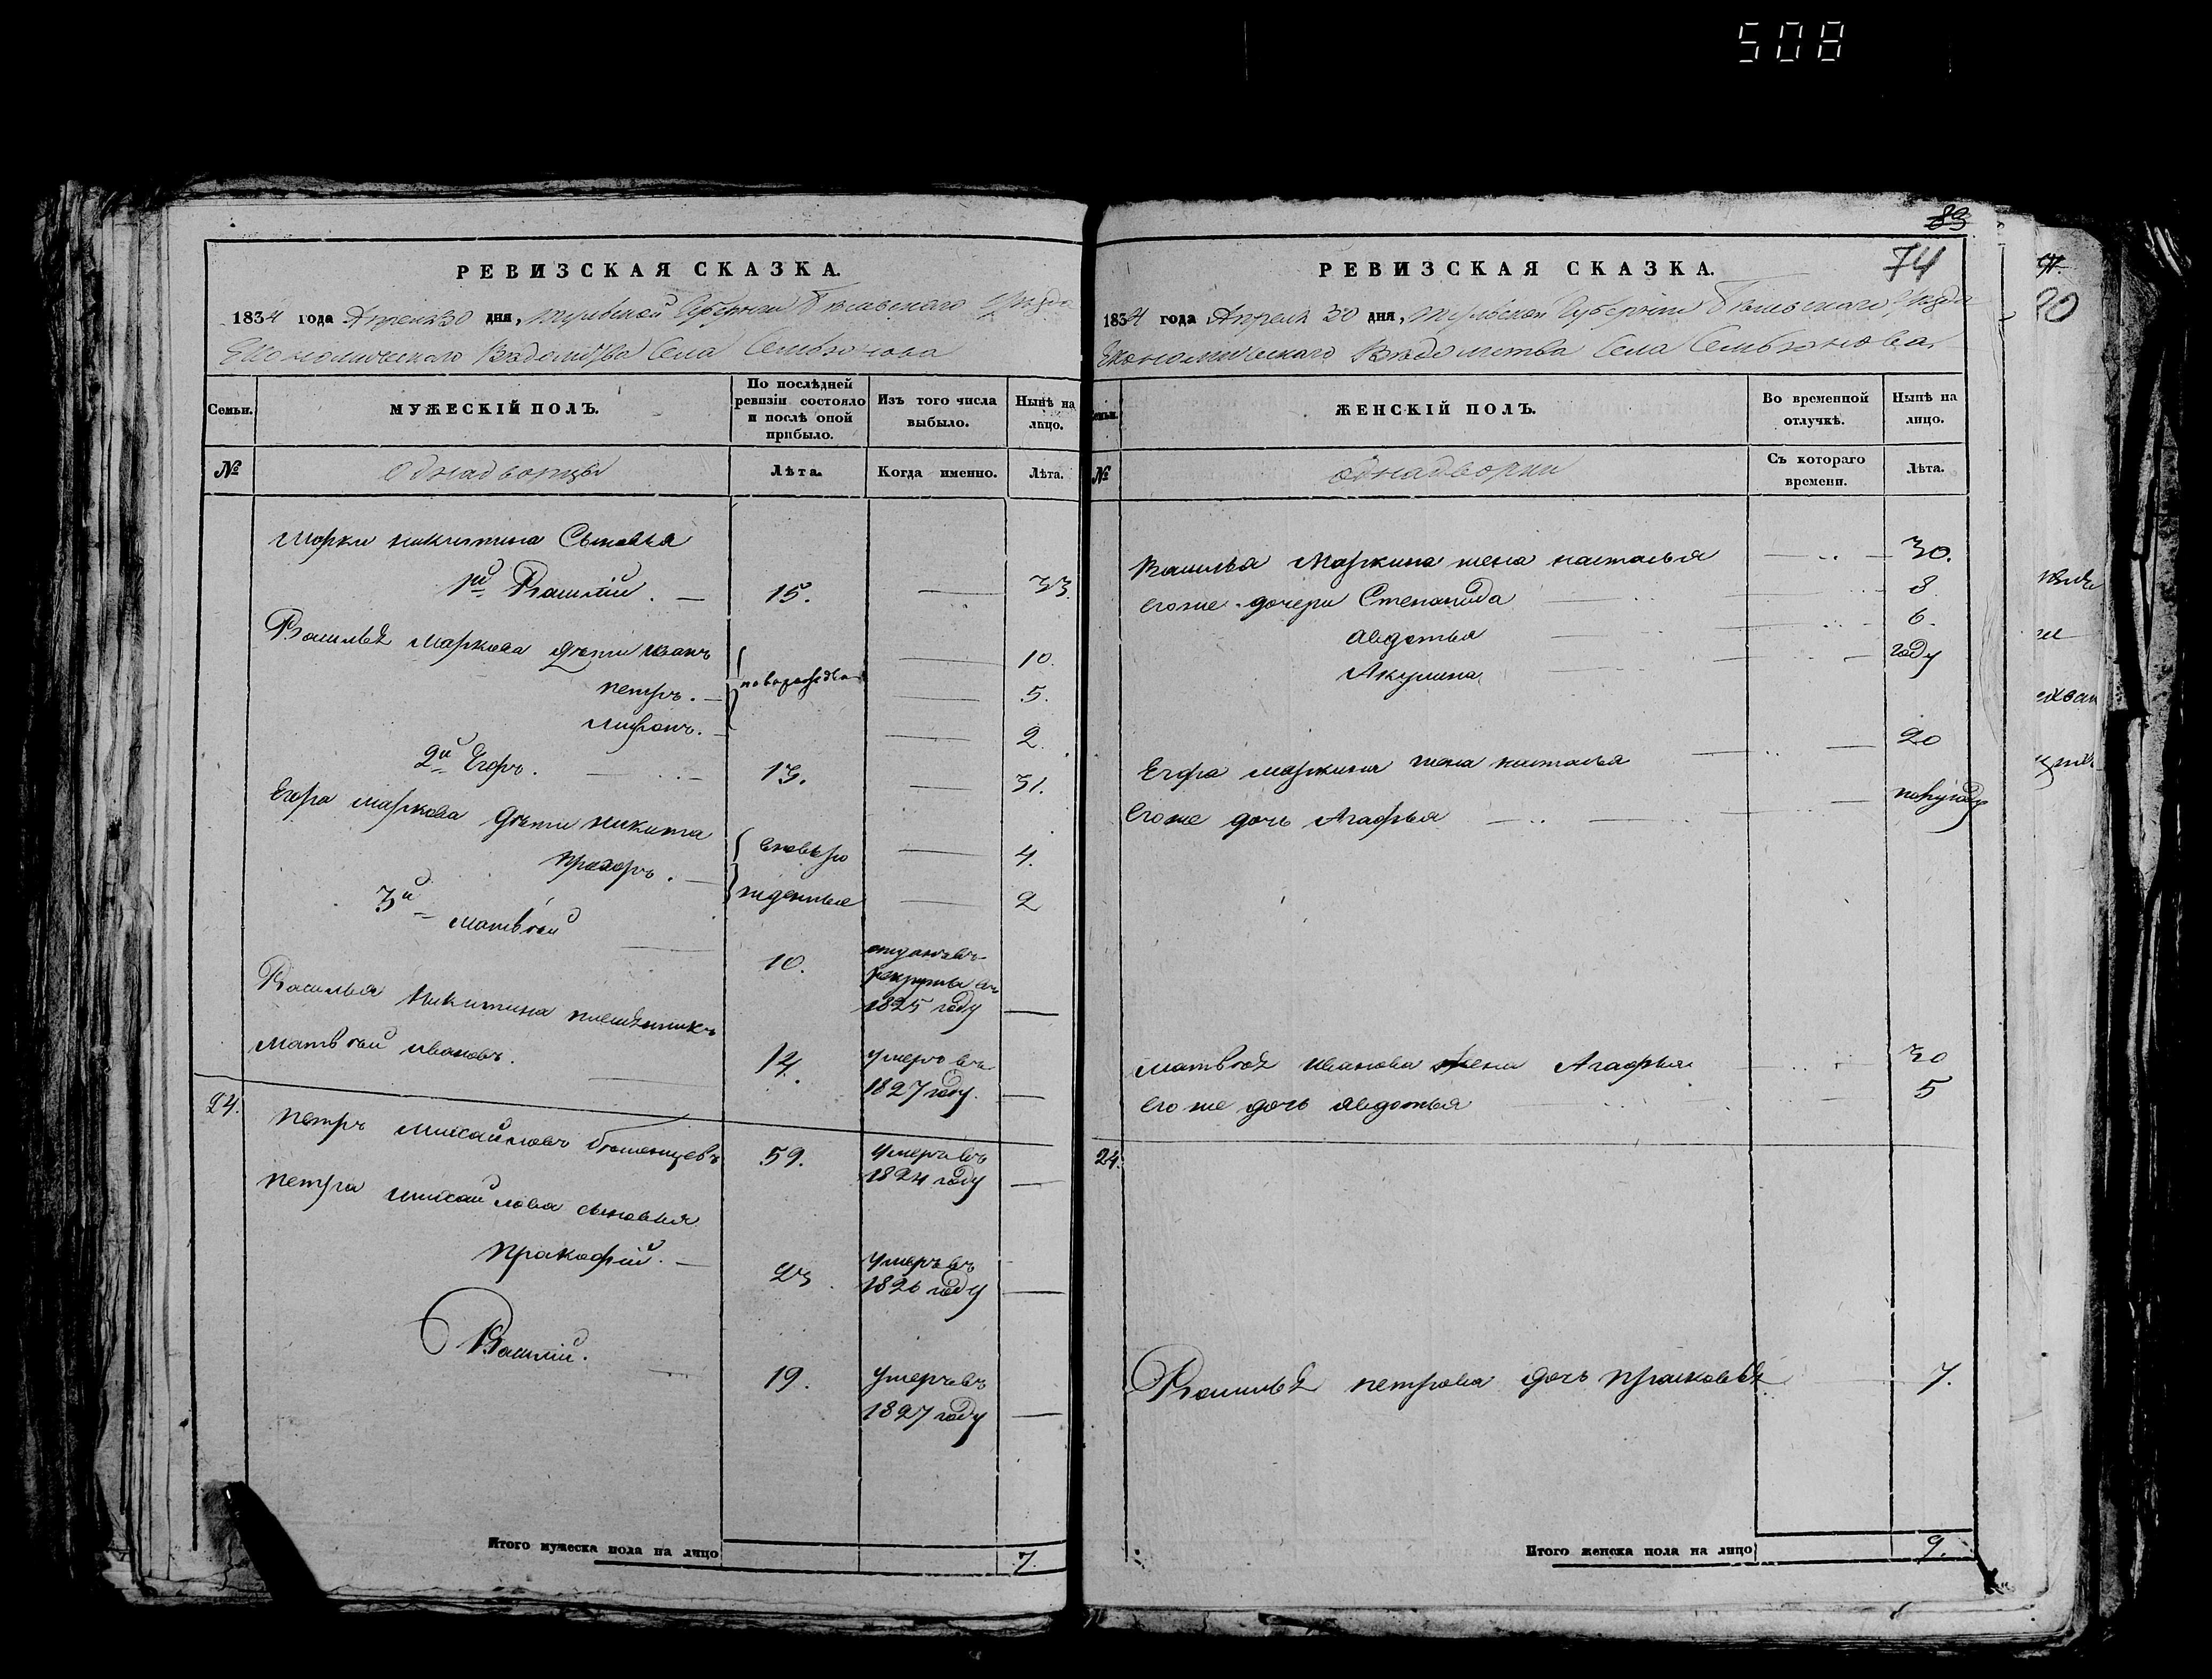 508
83
РЕВИЗСКАЯ СКАЗКА.
1834 года Апреля 30 дня, Тульской Губернии Белевскаго Уезда
Економическаго Ведомства Села Семьюнова
Семьи.
МУЖЕСКІЙ ПОЛЪ.
По послѣдней ревизіи состояло и послѣ оной прибыло.
Изъ того числа выбыло.
Нынѣ на лицо.
№
однадворцы
Лѣта.
Когда именно.
Лѣта.
Марки никитина Сыновья
1й Василий. 15. 33.
Василья Маркова дети иванъ 10.
петръ. новорожде 5.
миронъ. 2.
2й Егоръ. 13. 31.
Егора маркова дети никита вновь ро 4.
прохоръ. жденные 2
3й матвей 10. отданъ въ рекруты въ 1825 году
Василья Никитина племянникъ
матвей ивановъ. 14. умеръ въ 1827 году.
24. петръ михайловъ 59. умеръ въ 1824 году
петра михайлова сыновья
прокофий. 23 умеръ въ 1826 году
Василий. 19. умеръ въ 1827 году
Итого мужеска пола на лицо 7.
74
РЕВИЗСКАЯ СКАЗКА.
1834 года Апреля 30 дня, Тульской Губернии Белевскаго Уезда
Економическаго Ведомства Села Семьюнова.
ЖЕНСКІЙ ПОЛЪ.
Во временной отлучкѣ.
Нынѣ на лицо.
№
однадворки
Съ котораго времени.
Лѣта.
Василья Маркина жена наталья 30.
егоже дочери Степанида 8.
авдотья 6.
Акулина году
Егора маркина жена наталья 20
егоже дочь Агафья полугоду
матвея иванова жена Агафья 30
егоже дочь авдотья 5
24.
Василья петрова дочь прасковья 7.
Итого женска пола на лицо 9.